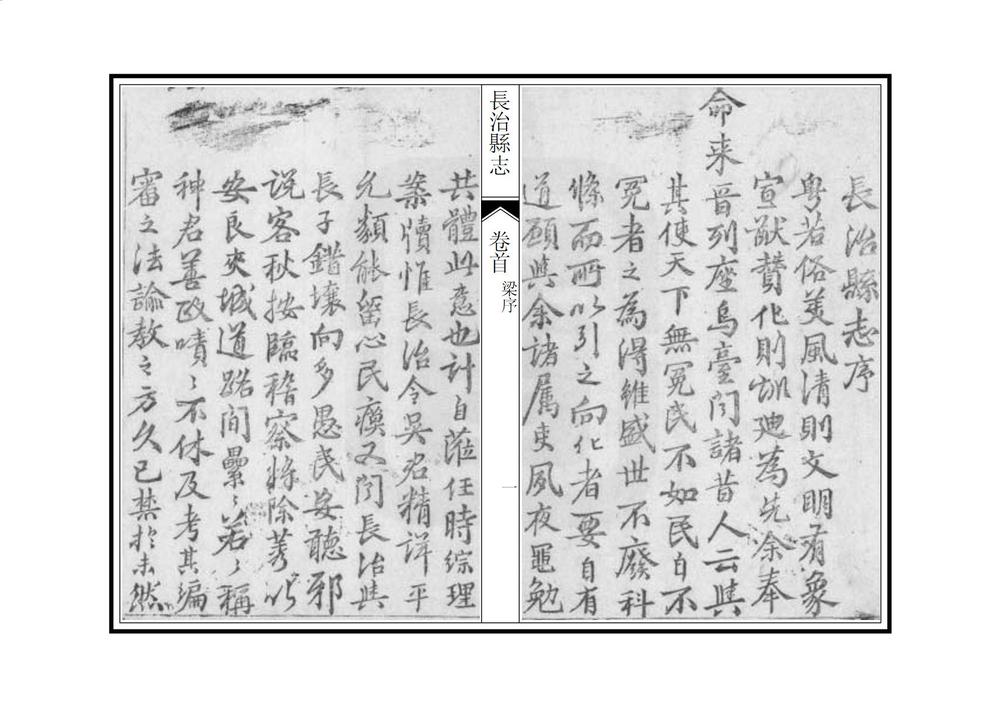 長治縣志序
粤若俗美風清則文明有象
宣猷贊化則訓迪為先余奉
命来晋列座烏臺閱諸昔人云與
其使天下無冤民不如民自不
冤者之為得維盛世不廢科
條而所以引之向化者要自有
道願與余諸属吏夙夜黽勉
長治縣志
卷首
梁序
一
共體此意也計自蒞任時綜理
案牘惟長治令吴君精詳平
允頗能留心民瘼又閱長治與
長子錯壤向多愚民妄聽邪
说客秋按臨稽察將除莠以
安良夾城道路间纍〻若〻稱
神君善政嘖〻不休及考其編
審之法諭教之方久已禁於未然